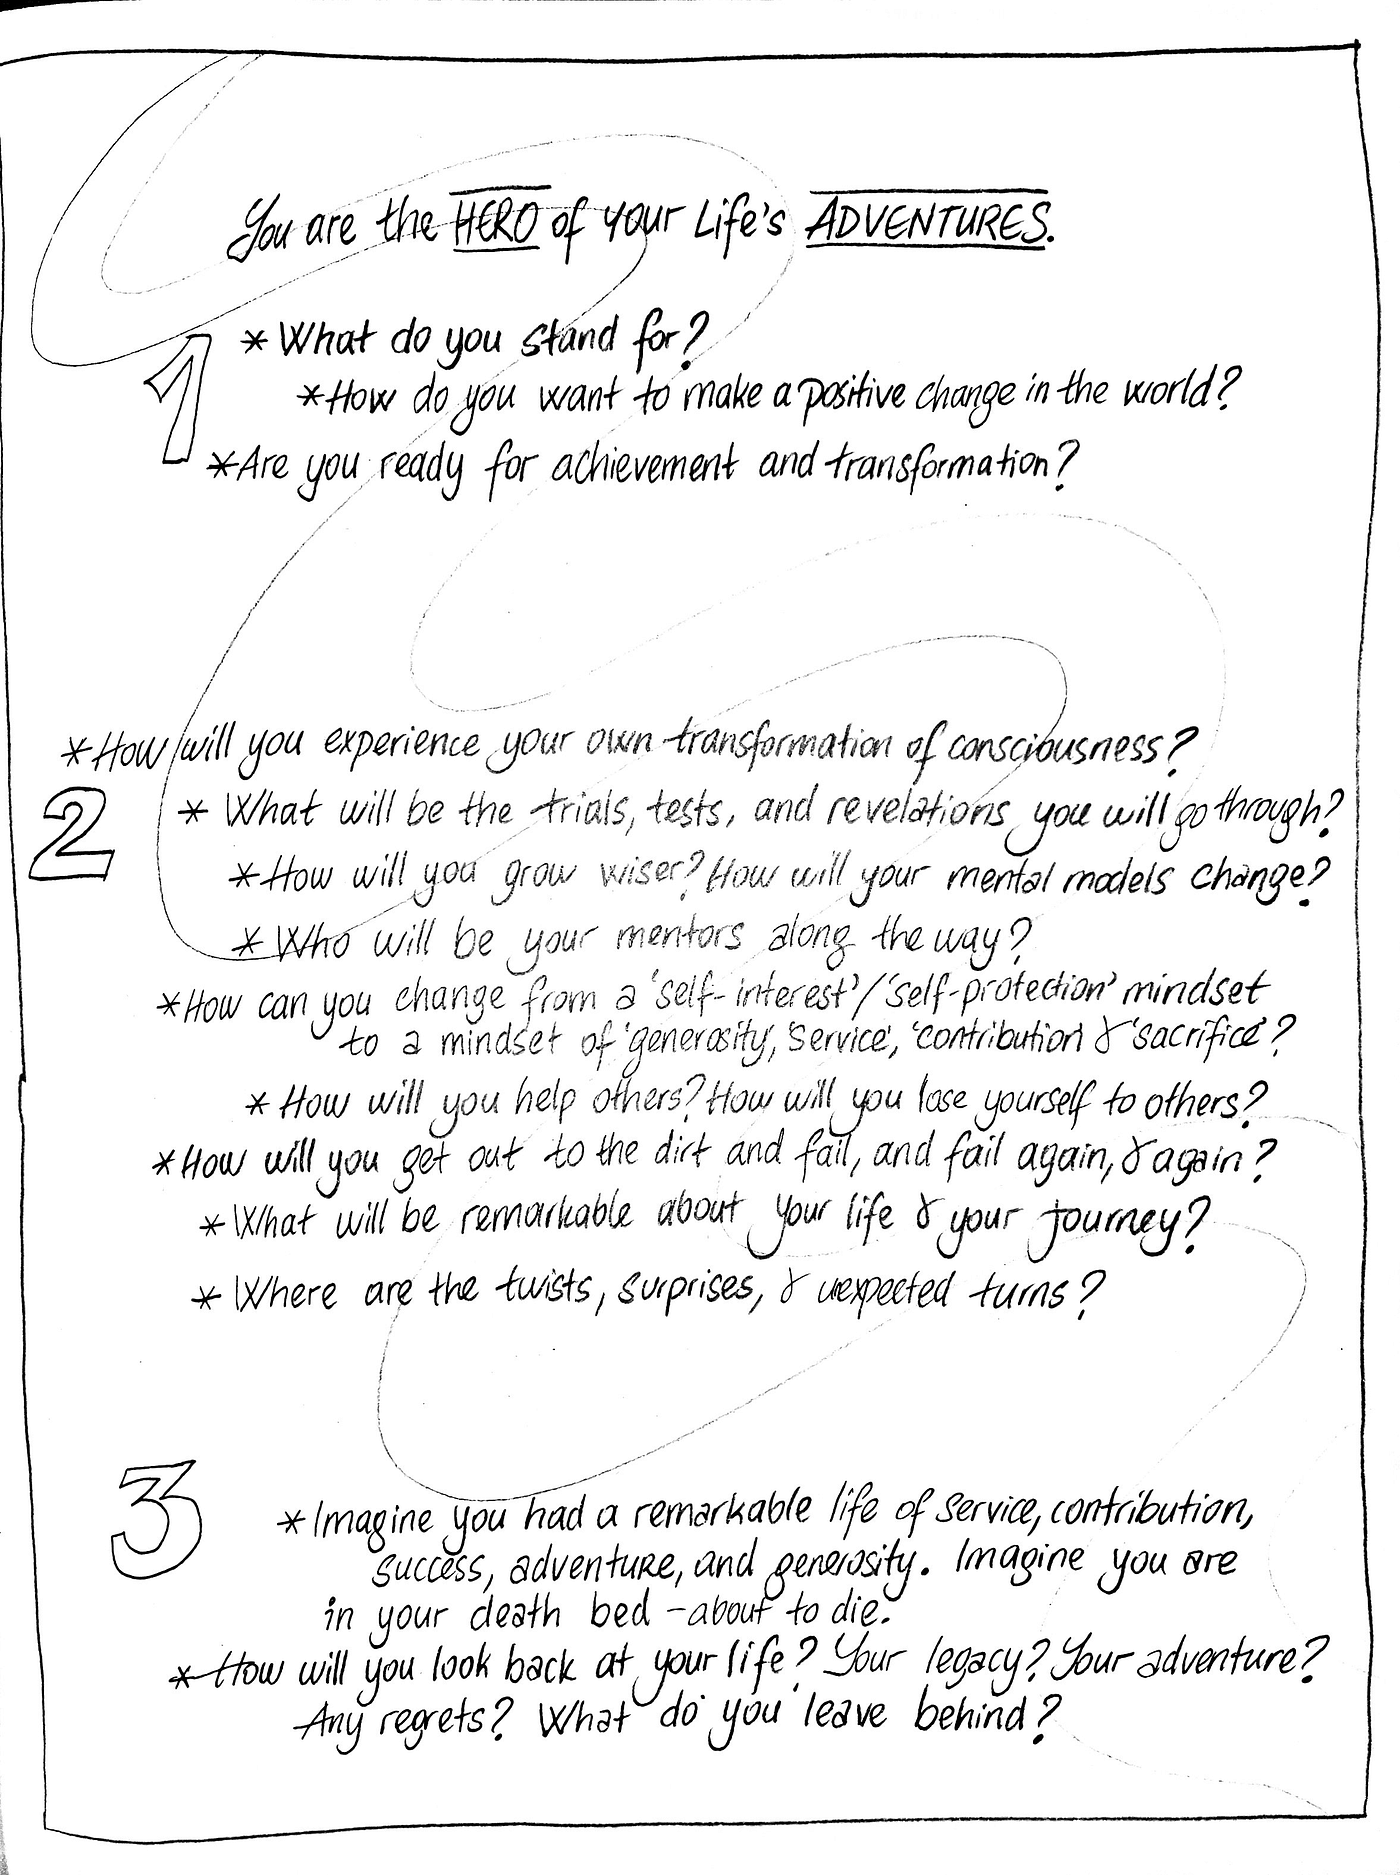 You are the HERO of your Life's ADVENTURES.
1
* What do you stand for?
* How do you want to make a positive change in the world?
* Are you ready for achievement and transformation?
* How will you experience your own transformation of consciousness?
2
* What will be the trials, tests, and revelations you will go through?
* How will you grow wiser? How will your mental models change?
* Who will be your mentors along the way?
* How can you change from a 'self-interest'/'self-protection' mindset
to a mindset of 'generosity', 'service', 'contribution' & 'sacrifice'?
* How will you help others? How will you lose yourself to others?
* How will you get out to the dirt and fail, and fail again, & again?
* What will be remarkable about your life & your journey?
* Where are the twists, surprises, & unexpected turns?
3
* Imagine you had a remarkable life of service, contribution,
success, adventure, and generosity. Imagine you are
in your death bed - about to die.
* How will you look back at your life? Your legacy? Your adventure?
Any regrets? What do you leave behind?